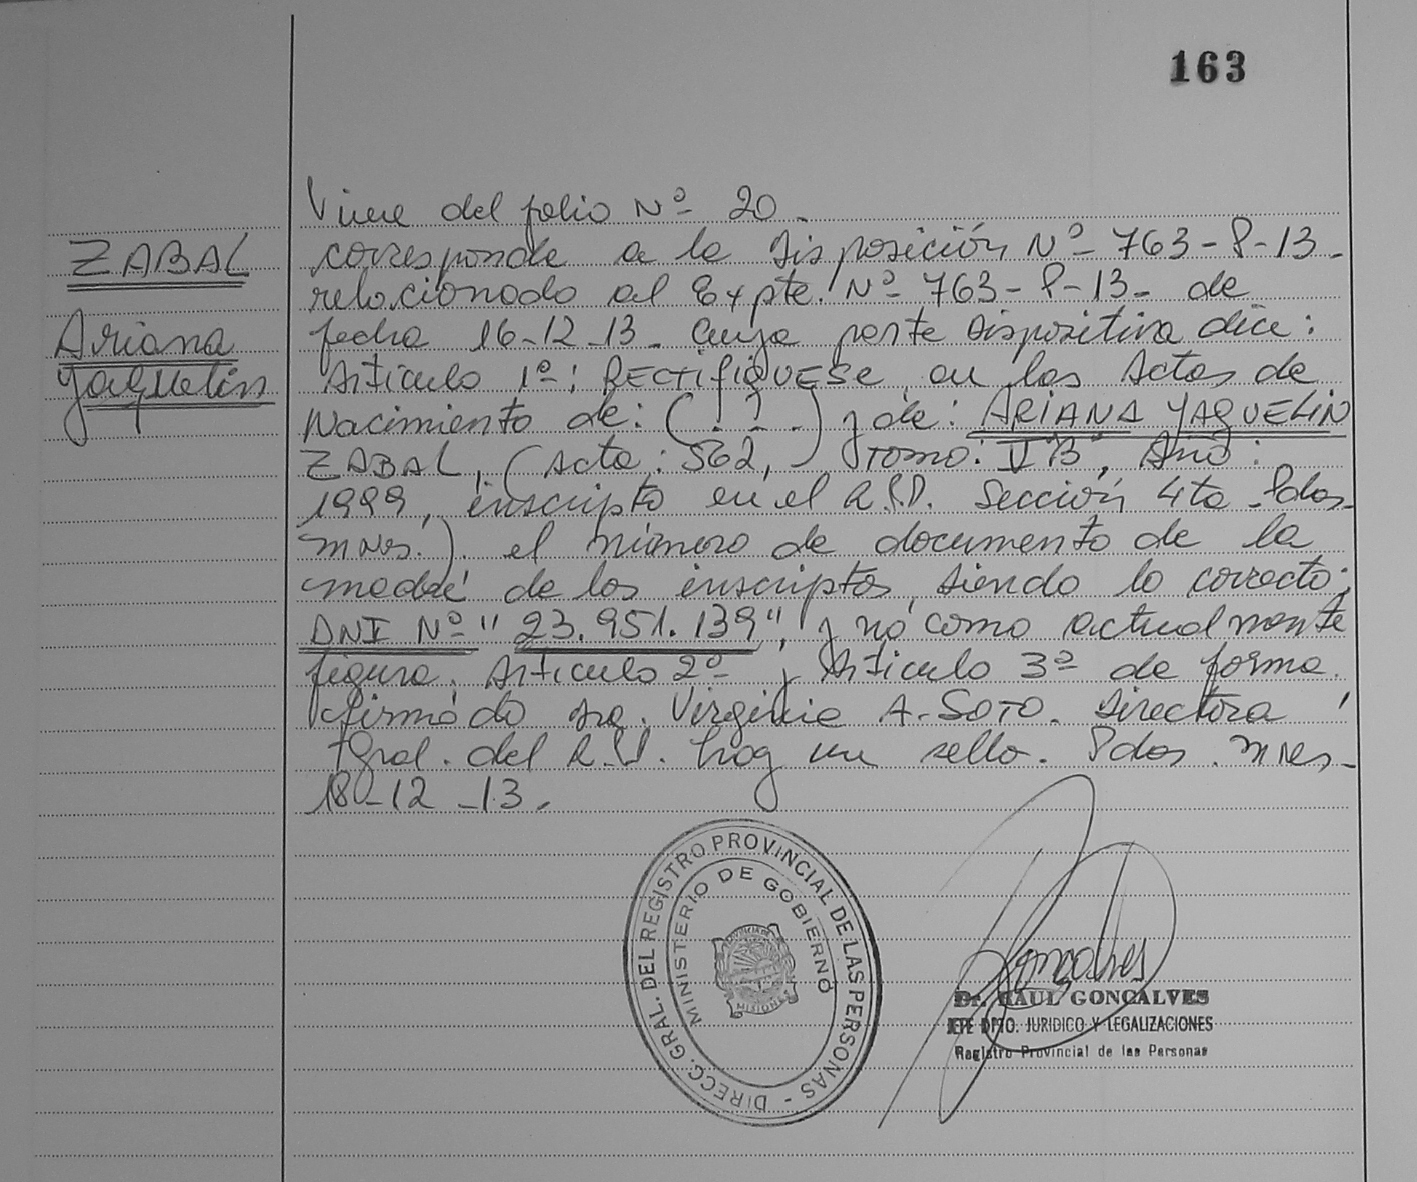 163
ZABAL
Ariana
Yaquelin
Viene del folio Nº 20.
corresponde a la Disposición Nº 763-P-13.
relacionado al Expte. Nº 763-P-13- de
fecha 16-12-13. Cuya parte dispositiva dice:
Artículo 1º: RECTIFIQUESE en las Actas de
Nacimiento de: (. . .) y de: ARIANA YAQUELIN
ZABAL, (Acta: 562, Tomo: I"B", Año:
1999, inscripto en el R.P.P. Sección 4ta Pdas-
mnes.). el número de documento de la
madre de los inscriptos, siendo lo correcto:
DNI Nº "23.951.139", y no como actualmente
figura. Artículo 2º y Artículo 3º de forma.
firmado Sra. Virginia A. SOTO. Directora
Gral. del R.P. hay un sello. Pdas. mnes-
18-12-13.
DIRECC. GRAL. DEL REGISTRO PROVINCIAL DE LAS PERSONAS -
MINISTERIO DE GOBIERNO
PROVINCIA DE
MISIONES
Gonçalves
Dr. RAUL GONÇALVES
JEFE DPTO. JURIDICO Y LEGALIZACIONES
Registro Provincial de las Personas